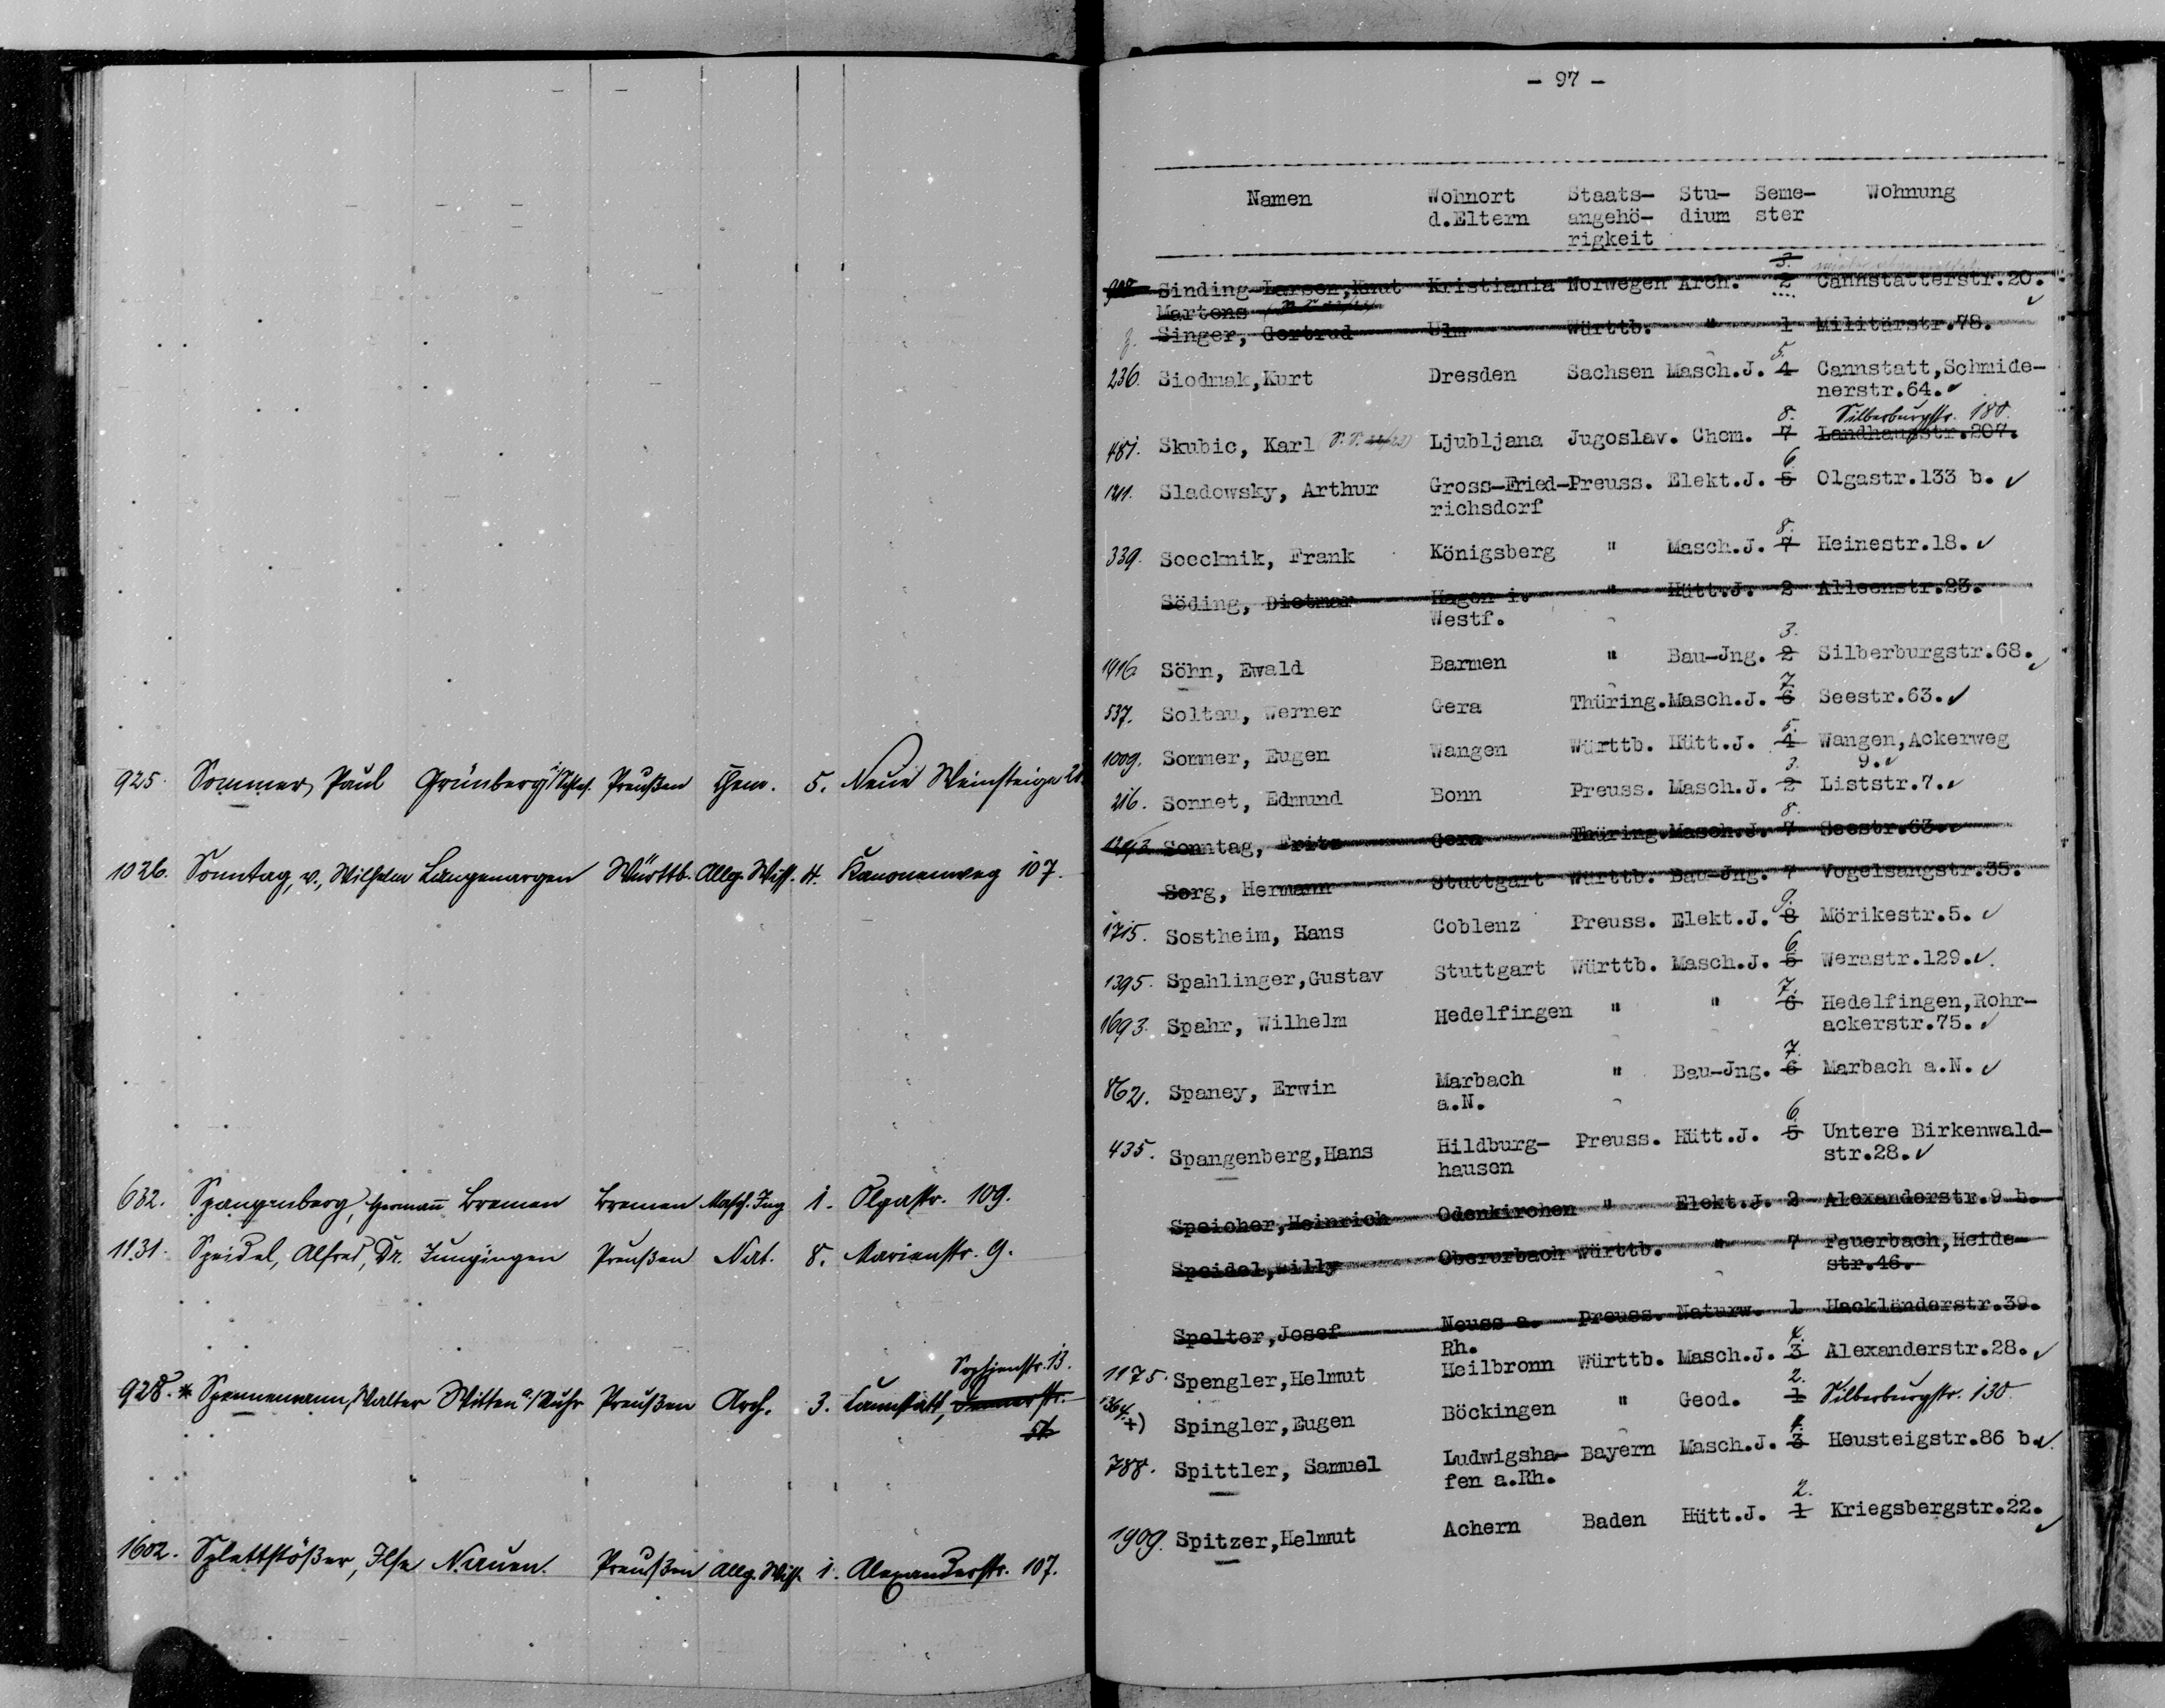 925. Sommer, Paul Grünberg i/Schles. Preußen Chem. 5. Neue Weinsteige
1026. Sonntag, v., Wilhelm Langenargen Württb. Allg. Wiss. 4. Kanonenweg 107.
632. Spangenberg, Hermann Bremen Bremen Masch. Ing 1. Olgastr. 109.
1131. Speidel, Alfred, Dr. Jungingen Preußen Nat. 8. Marienstr. 9.
Sophienstr. 13.
928. * Spennemann, Walter Witten a/Ruhr Preußen Arch. 3. Cannstatt,
1602. Splettstößer, Ilse Nauen. Preußen Allg. Wiss. 1. Alexanderstr. 107.
- 97 -
Namen Wohnort Staats- Stu- Seme- Wohnung
d.Eltern angehö- dium ster
rigkeit
3.
908 Sinding-Larsen,Knut Kristiania Norwegen Arch. 2 Cannstatterstr.20.
Martens
Singer, Gertrud Ulm Württb. " 1 Militärstr.78.
5.
236. Siodmak,Kurt Dresden Sachsen Masch.J. 4 Cannstatt,Schmide-
nerstr.64.
8. Silberburgstr. 180.
481. Skubic, Karl Ljubljana Jugoslav. Chem. 7 Landhausstr.207.
6
1211. Sladowsky, Arthur Gross-Fried- Preuss. Elekt.J. 5 Olgastr.133 b.
richsdorf
8.
339. Soecknik, Frank Königsberg " Masch.J. 7 Heinestr.18.
Söding, Dietmar Hagen i. " Hütt.J. 2 Alleenstr.23.
Westf.
3.
1416. Söhn, Ewald Barmen " Bau-Jng. 2 Silberburgstr.68.
7
537. Soltau, Werner Gera Thüring. Masch.J. 6 Seestr.63.
5.
1009. Sommer, Eugen Wangen Württb. Hütt.J. 4 Wangen,Ackerweg
9.
3.
216. Sonnet, Edmund Bonn Preuss. Masch.J. 2 Liststr.7.
8.
Sonntag, Fritz Gera Thüring. Masch.J. 7 Seestr.63.
Sorg, Hermann Stuttgart Württb. Bau-Jng. 7 Vogelsangstr.35.
9.
1715. Sostheim, Hans Coblenz Preuss. Elekt.J. 8 Mörikestr.5.
6
1395. Spahlinger,Gustav Stuttgart Württb. Masch.J. 5 Werastr.129.
7.
1693. Spahr, Wilhelm Hedelfingen " " 6 Hedelfingen,Rohr-
ackerstr.75.
7.
862. Spaney, Erwin Marbach " Bau-Jng. 6 Marbach a.N.
a.N.
6.
435. Spangenberg,Hans Hildburg- Preuss. Hütt.J. 5 Untere Birkenwald-
hausen str.28.
Speicher,Heinrich Odenkirchen " Elekt.J. 2 Alexanderstr.9 b.
Speidel,Willy Oberurbach Württb. " 7 Feuerbach,Heide-
str.46.
Spelter,Josef Neuss a. Preuss. Naturw. 1 Hackländerstr.39.
Rh.
4.
1175. Spengler,Helmut Heilbronn Württb. Masch.J. 3 Alexanderstr.28.
2.
1364. +) Spingler,Eugen Böckingen " Geod. 1 Silberburgstr. 130.
4.
788. Spittler, Samuel Ludwigsha- Bayern Masch.J. 3 Heusteigstr.86 b.
fen a.Rh.
2.
1909. Spitzer,Helmut Achern Baden Hütt.J. 1 Kriegsbergstr.22.